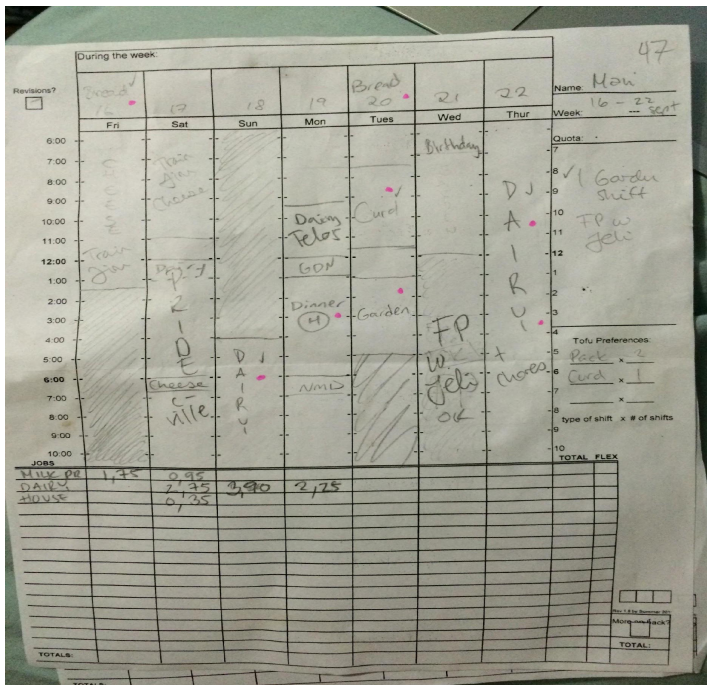 During the week:
47
Revisions?
Bread
Bread
16 17 18 19 20 21 22
Name: Mari
Week: 16 - 22 Sept
Fri Sat Sun Mon Tues Wed Thur
Quota:
6:00
7:00
8:00
9:00
10:00
11:00
12:00
1:00
2:00
3:00
4:00
5:00
6:00
7:00
8:00
9:00
10:00
CHEESE
Train
Train
Cheese
PRIDE
Cheese
C-ville
DAIRY
Dairy
GDN
Dinner
M
NMD
Curd
Garden
Birthday
FP
w
Jeli
OK
DAIRY
+
chores
7
8
9
10
11
12
1
2
3
4
5
6
7
8
9
10
1 Garden
shift
FP w
Jeli
Tofu Preferences:
Pack x 2
Curd x 1
x
type of shift x # of shifts
JOBS TOTAL FLEX
MILK PR 1,75 0,95
DAIRY 2,75 3,90 2,25
HOUSE 0,35
More on back?
TOTALS: TOTAL: